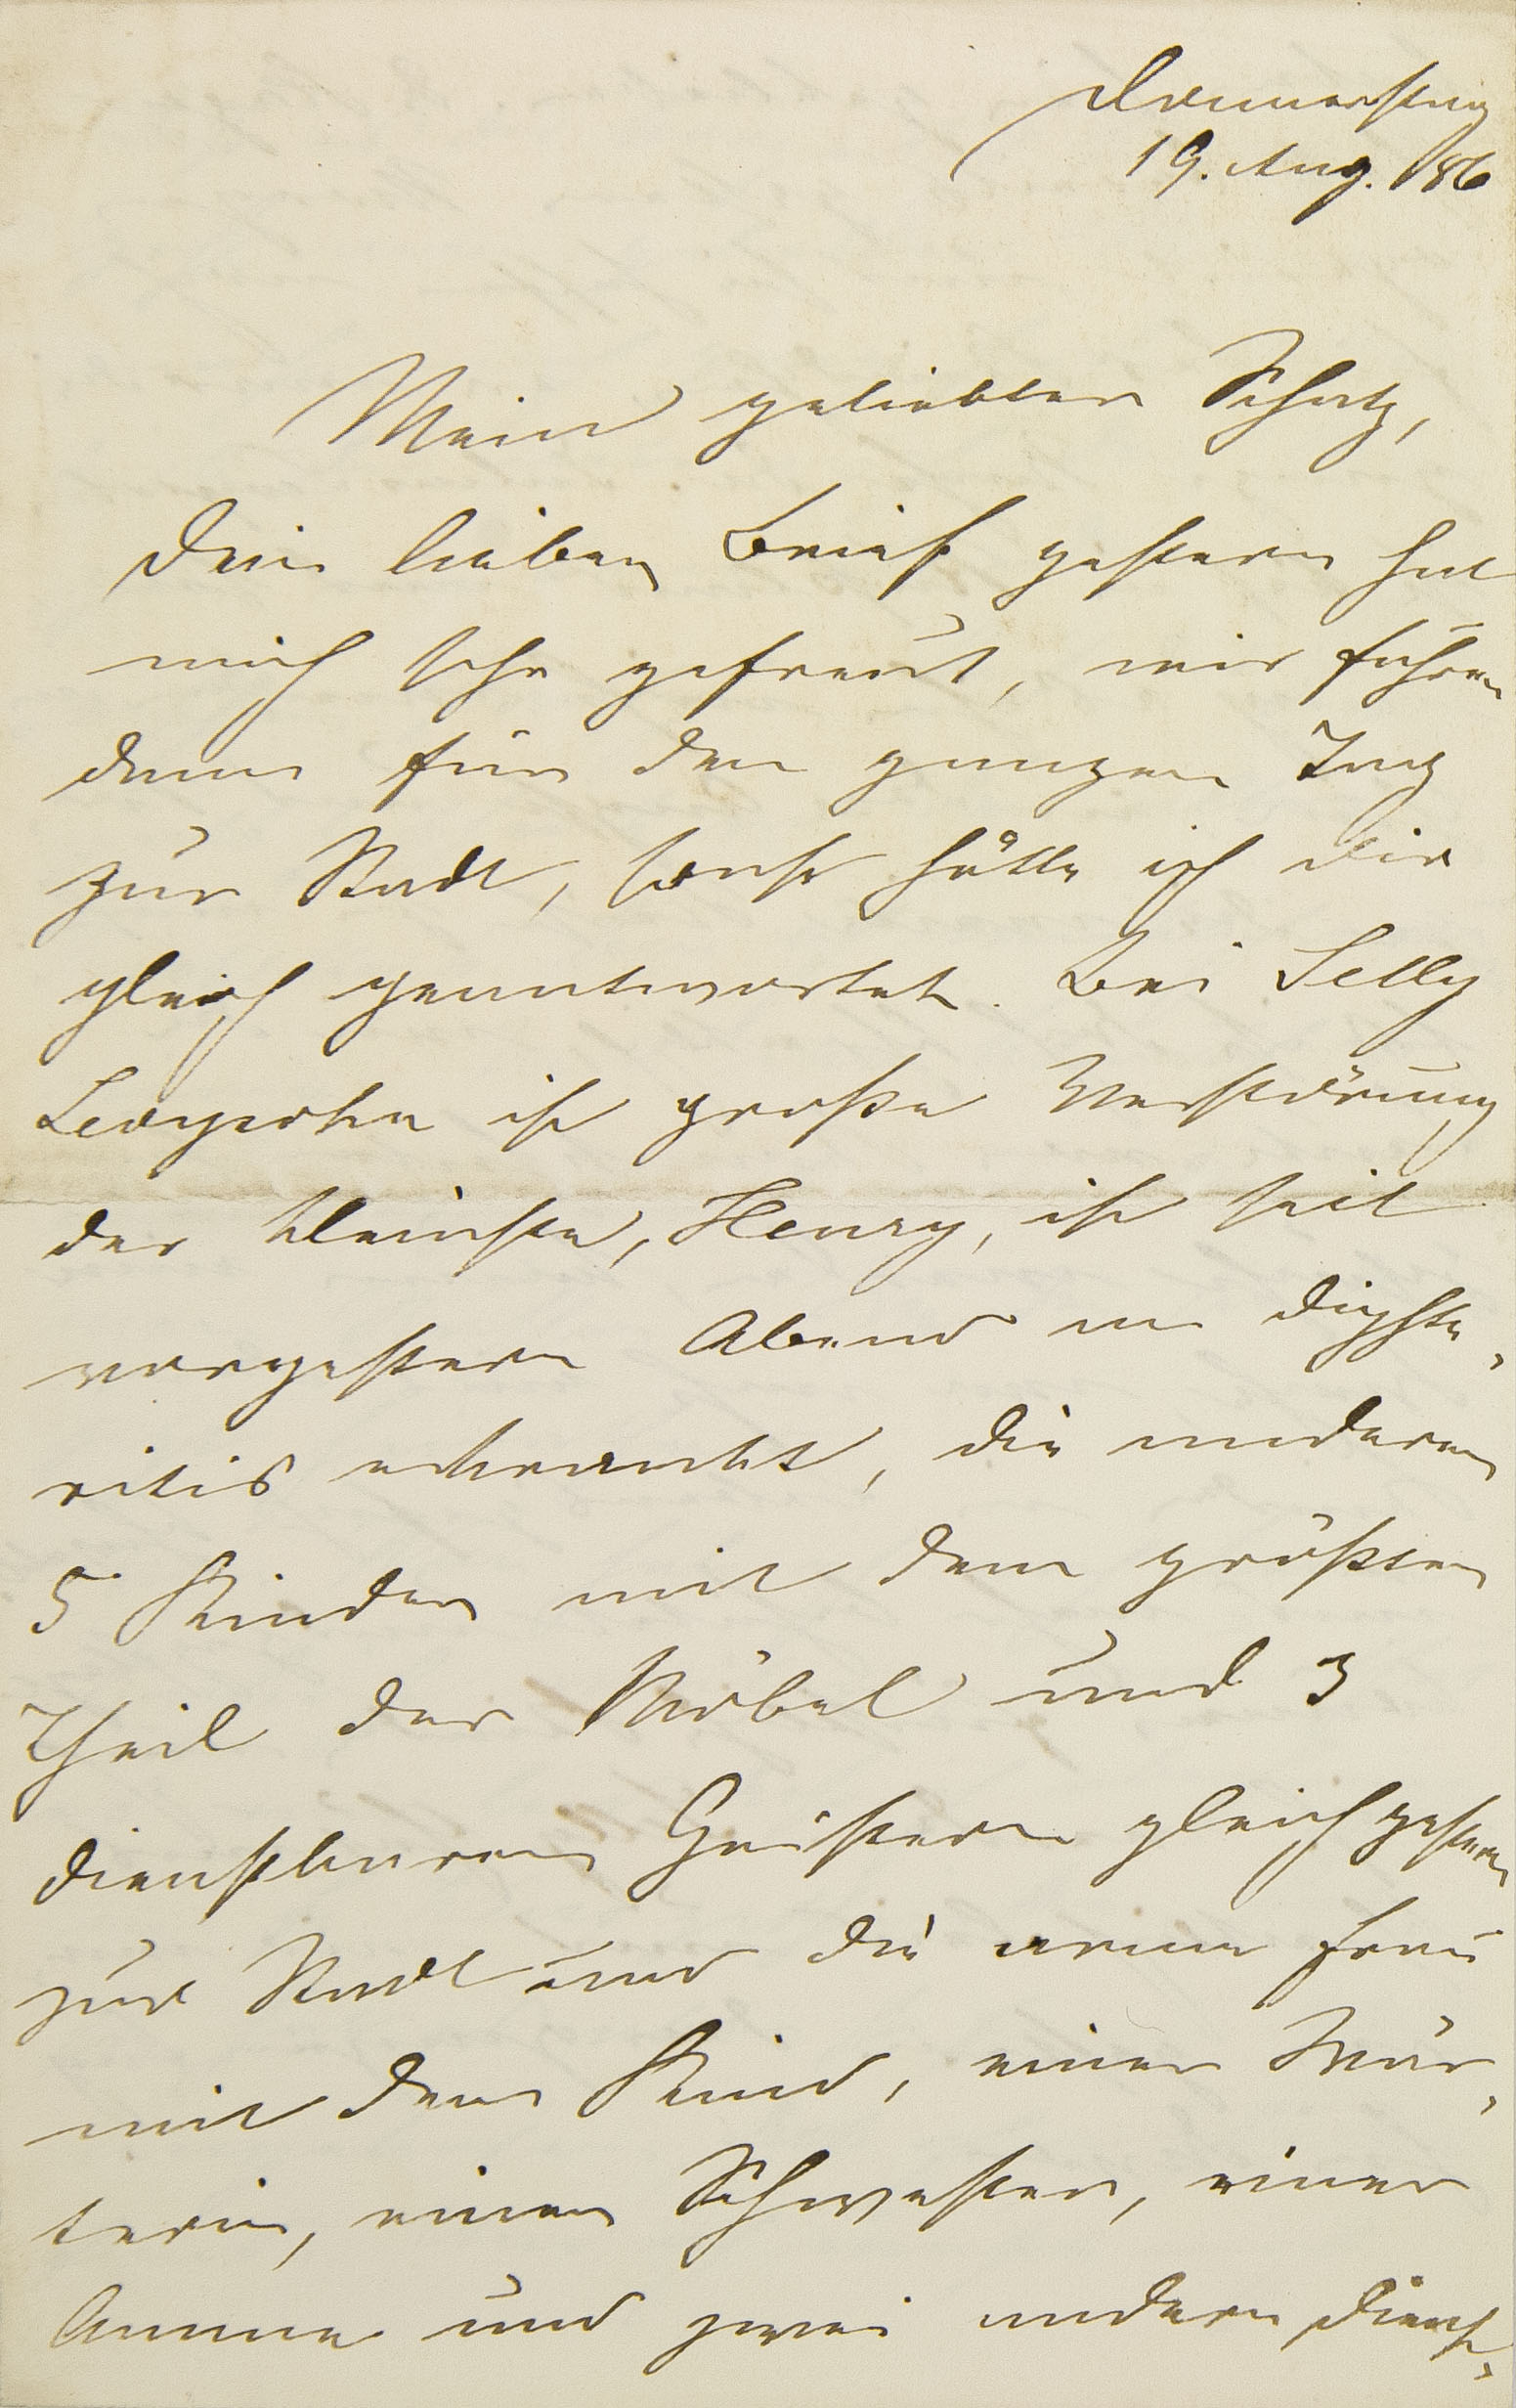 Donnerstag
19. Aug. 86
Mein geliebter Schatz,
Dein lieber Brief gestern hat
mich sehr gefreut, wir fuhren
dann für den ganzen Tag
zur Stadt, sonst hätte ich Dir
gleich geantwortet. Bei Selly
ist große Verstörung
der Kleinste, Henry, ist seit
vorgestern Abend an Diphte,
ritis erkrankt, die anderen
5 Kinder mit dem größten
Theil der Möbel und 3
dienstbaren Geistern gleich gestern
zur Stadt und die arme Frau
mit dem Kind, einer Wär,
terin, einer Schwester, einer
Amme und zwei andern Dienst,